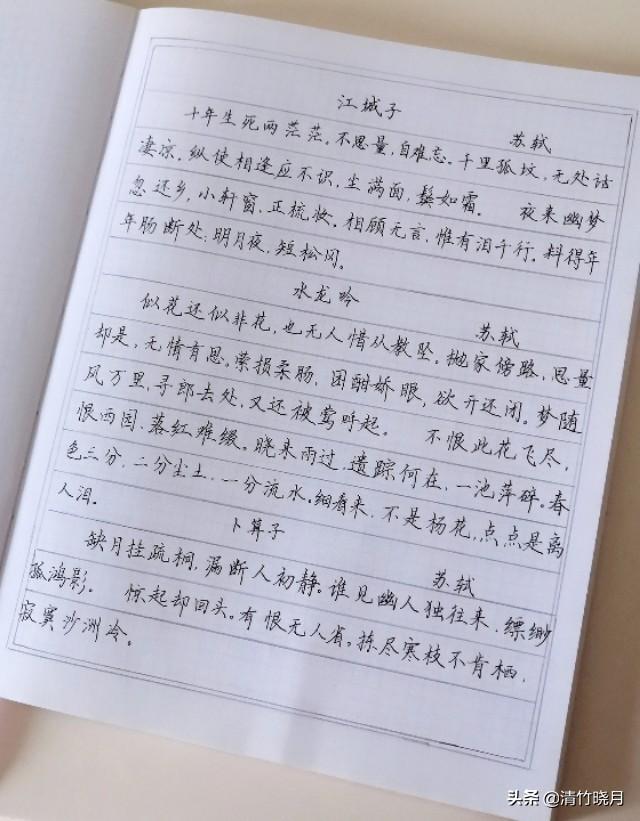 江城子
苏轼
十年生死两茫茫。不思量,自难忘。千里孤坟,无处话
凄凉。纵使相逢应不识,尘满面,鬓如霜。 夜来幽梦
忽还乡,小轩窗,正梳妆。相顾无言,惟有泪千行。料得年
年肠断处:明月夜,短松冈。
水龙吟
苏轼
似花还似非花,也无人惜从教坠。抛家傍路,思量
却是,无情有思。萦损柔肠,困酣娇眼,欲开还闭。梦随
风万里,寻郎去处,又还被莺呼起。 不恨此花飞尽,
恨西园,落红难缀。晓来雨过,遗踪何在,一池萍碎。春
色三分,二分尘土,一分流水。细看来,不是杨花,点点是离
人泪。
卜算子
苏轼
缺月挂疏桐,漏断人初静。谁见幽人独往来,缥缈
孤鸿影。 惊起却回头。有恨无人省。拣尽寒枝不肯栖,
寂寞沙洲冷。
头条 @清竹晓月